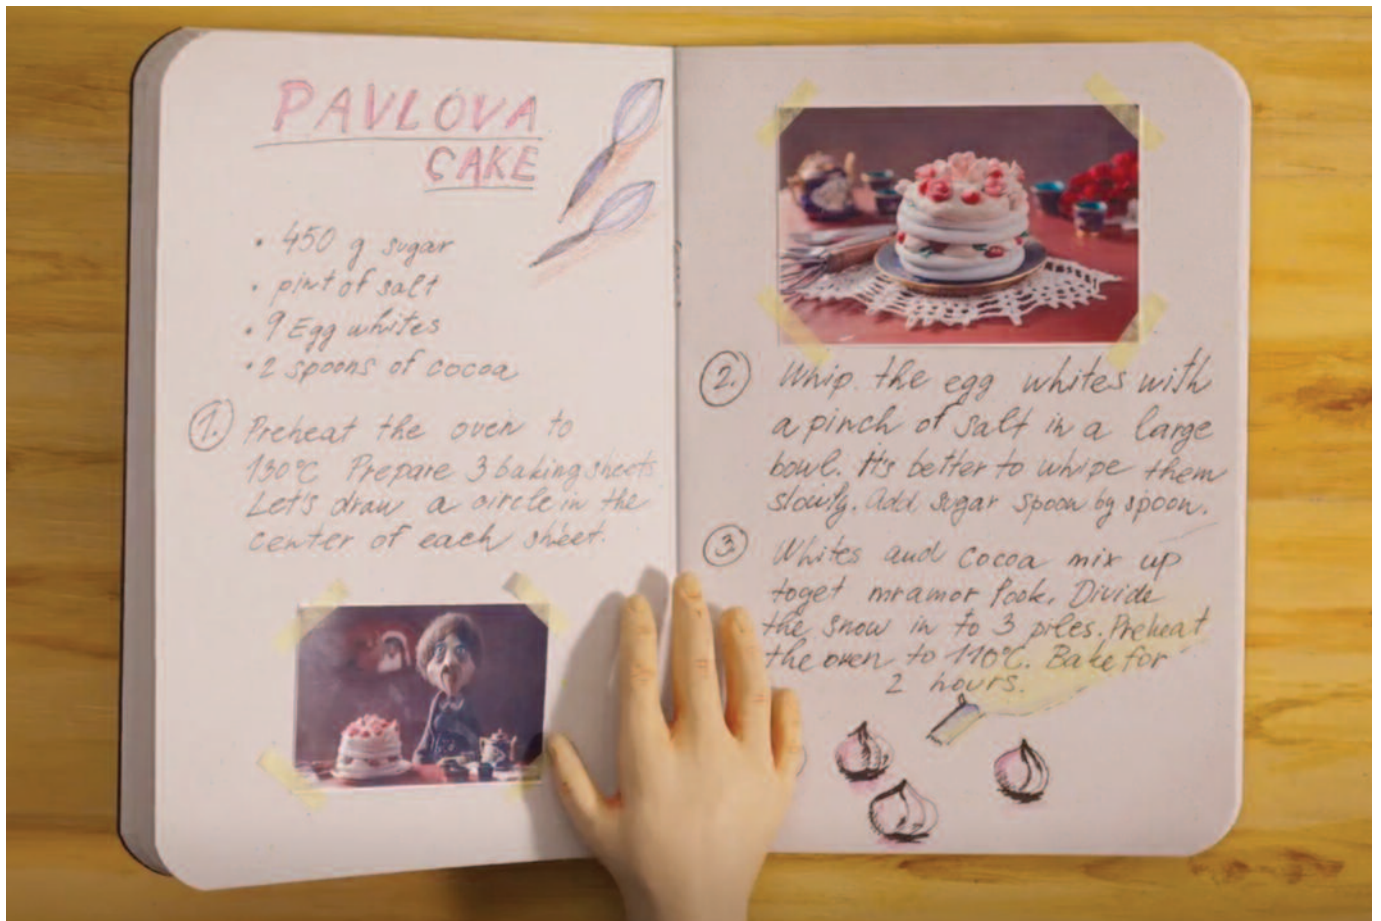 PAVLOVA
CAKE
• 450 g sugar
• pint of salt
• 9 Egg whites
• 2 spoons of cocoa
1. Preheat the oven to
130°C Prepare 3 baking sheets
Let's draw a circle in the
center of each sheet.
2. Whip the egg whites with
a pinch of salt in a large
bowl. It's better to whipe them
slowly. Add sugar spoon by spoon.
3 Whites and cocoa mix up
toget mramor look. Divide
the snow in to 3 piles. Preheat
the oven to 110°C. Bake for
2 hours.